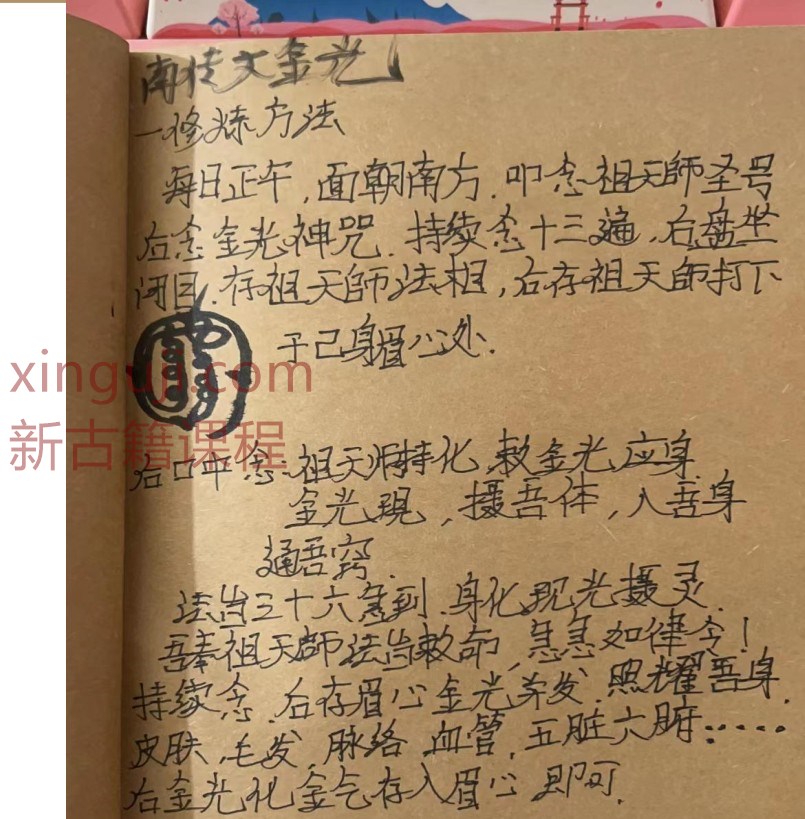 南传文金光
一修炼方法
每日正午,面朝南方.叩念祖天師圣号
右念金光神咒.持续念十三遍,右盘坐
闭目.存祖天師法相,右存祖天師打下
于己身眉心处.
xinguji.com
新古籍课程
右口中念:祖天师持化,敕金光应身
金光現,摄吾体,入吾身
通吾窍.
法旨三十六急到.身化现光摄灵.
吾奉祖天師法旨敕命,急急如律令!
持续念.右存眉心金光并发.照耀吾身.
皮肤,毛发,脉络.血管.五脏六腑......
右金光化金气存入眉心即可.